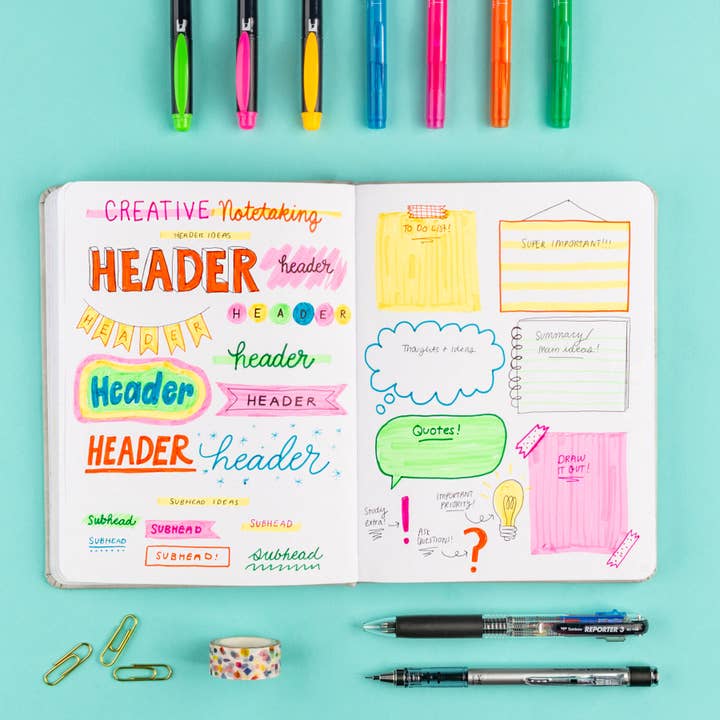 CREATIVE Notetaking
HEADER IDEAS
HEADER
header
HEADER
HEADER
header
Header
HEADER
HEADER
header
SUBHEAD IDEAS
Subhead
SUBHEAD
SUBHEAD
SUBHEAD
SUBHEAD!
Subhead
TO DO LIST!
SUPER IMPORTANT!!!
Thoughts + Ideas
Summary/
main ideas!
Quotes!
DRAW
IT OUT!
Study
extra!
!
IMPORTANT
PRIORITY!
ASK
QUESTIONS!
?
Tombow REPORTER 3